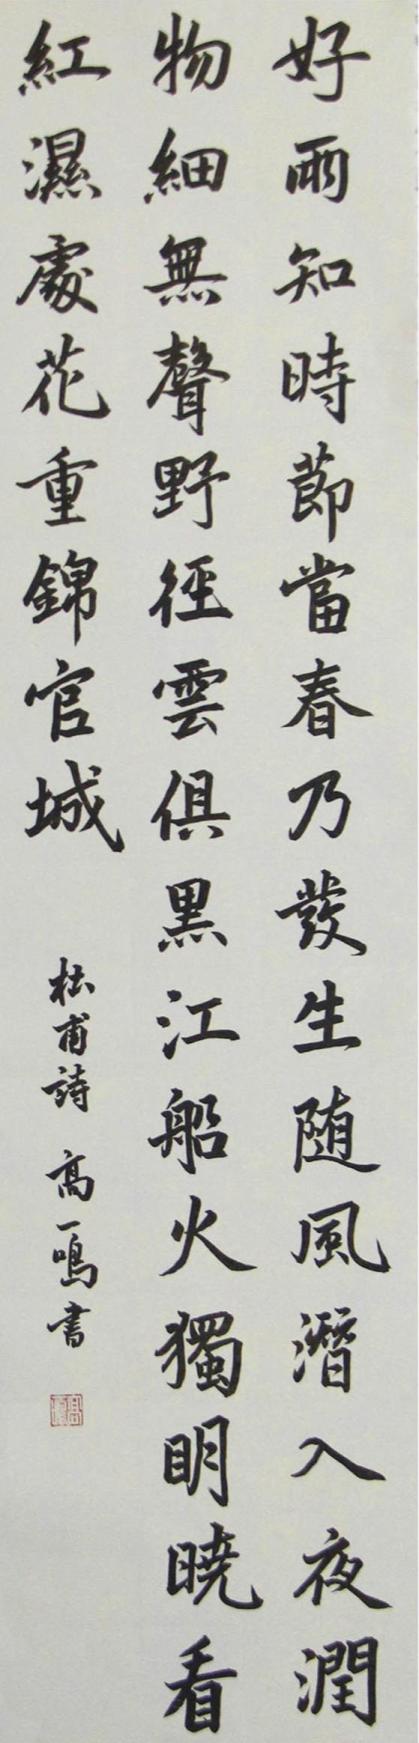 好雨知時節當春乃發生随風潛入夜潤
物細無聲野徑雲俱黑江船火獨明曉看
紅濕處花重錦官城
杜甫詩 高一鳴書